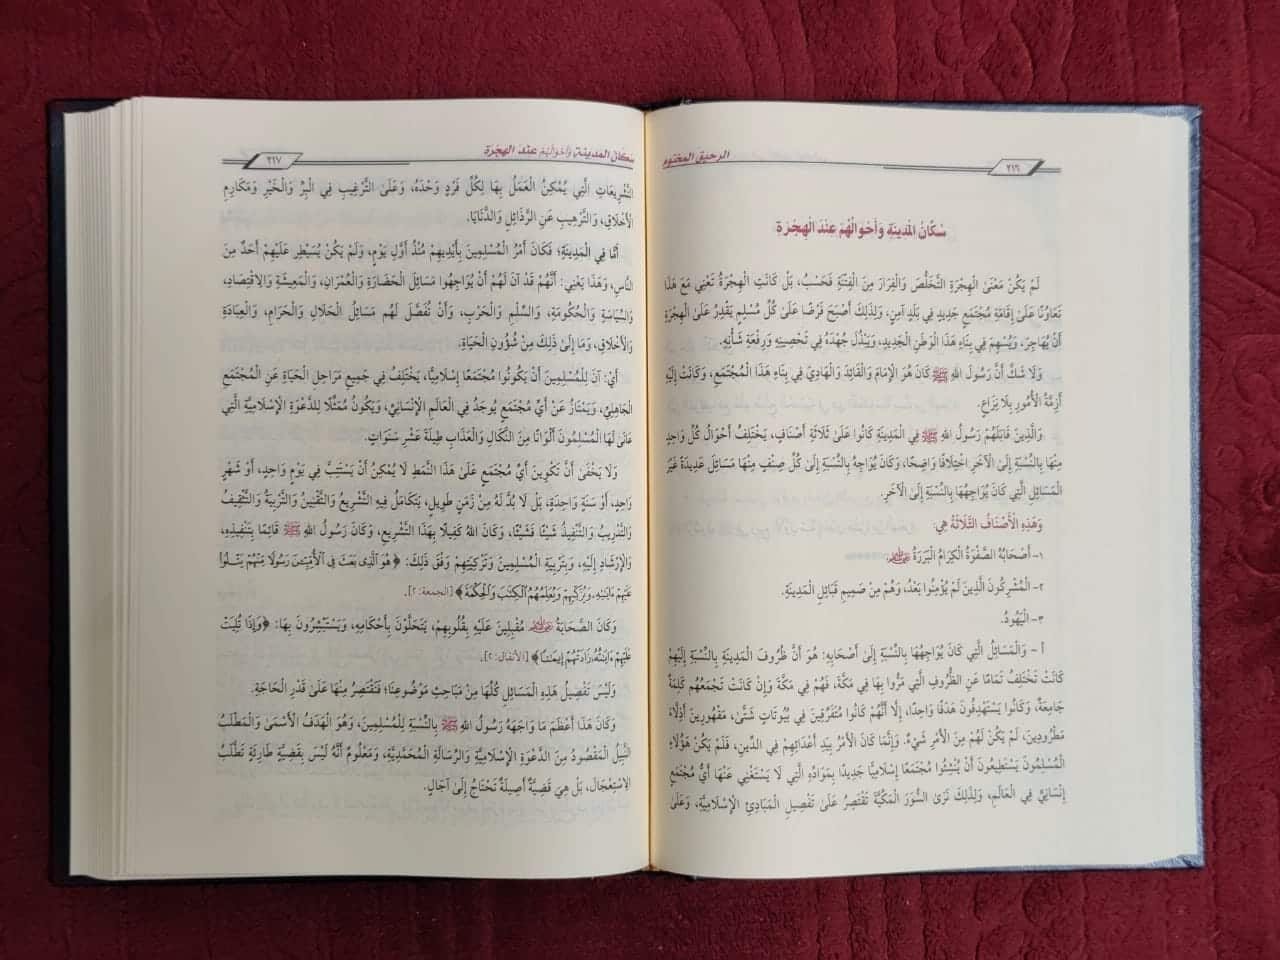 الرحيق المختوم
٢١٦
سُكَّانُ المَدِينَةِ وَأَحْوَالُهُمْ عِنْدَ الهِجْرَةِ
لَمْ يَكُنْ مَعْنَى الْهِجْرَةِ التَّخَلُّصَ وَالْفِرَارَ مِنَ الْفِتْنَةِ فَحَسْبُ، بَلْ كَانَتِ الْهِجْرَةُ تَعْنِي مَعَ هَذَا
تَعَاوُنًا عَلَىٰ إِقَامَةِ مُجْتَمَعٍ جَدِيدٍ فِي بَلَدٍ آمِنٍ، وَلِذَلِكَ أَصْبَحَ فَرْضًا عَلَىٰ كُلِّ مُسْلِمٍ يَقْدِرُ عَلَى الْهِجْرَةِ
أَنْ يُهَاجِرَ، وَيُسْهِمَ فِي بِنَاءِ هَذَا الْوَطَنِ الْجَدِيدِ، وَيَبْذُلَ جُهْدَهُ فِي تَحْصِينِهِ وَرِفْعَةِ شَأْنِهِ.
وَلَا شَكَّ أَنَّ رَسُولَ اللهِ ﷺ كَانَ هُوَ الْإِمَامَ وَالْقَائِدَ وَالْهَادِيَ فِي بِنَاءِ هَذَا الْمُجْتَمَعِ، وَكَانَتْ إِلَيْهِ
أَزِمَّةُ الْأُمُورِ بِلَا نِزَاعٍ.
وَالَّذِينَ قَابَلَهُمْ رَسُولُ اللهِ ﷺ فِي الْمَدِينَةِ كَانُوا عَلَىٰ ثَلَاثَةِ أَصْنَافٍ، يَخْتَلِفُ أَحْوَالُ كُلِّ وَاحِدٍ
مِنْهَا بِالنِّسْبَةِ إِلَى الْآخَرِ اخْتِلَافًا وَاضِحًا، وَكَانَ يُوَاجِهُ بِالنِّسْبَةِ إِلَىٰ كُلِّ صِنْفٍ مِنْهَا مَسَائِلَ عَدِيدَةً غَيْرَ
الْمَسَائِلِ الَّتِي كَانَ يُوَاجِهُهَا بِالنِّسْبَةِ إِلَى الْآخَرِ.
وَهَذِهِ الْأَصْنَافُ الثَّلَاثَةُ هِيَ:
١- أَصْحَابُهُ الصَّفْوَةُ الْكِرَامُ الْبَرَرَةُ ﵃.
٢- الْمُشْرِكُونَ الَّذِينَ لَمْ يُؤْمِنُوا بَعْدُ، وَهُمْ مِنْ صَمِيمِ قَبَائِلِ الْمَدِينَةِ.
٣- الْيَهُودُ.
أ - وَالْمَسَائِلُ الَّتِي كَانَ يُوَاجِهُهَا بِالنِّسْبَةِ إِلَىٰ أَصْحَابِهِ: هُوَ أَنَّ ظُرُوفَ الْمَدِينَةِ بِالنِّسْبَةِ إِلَيْهِمْ
كَانَتْ تَخْتَلِفُ تَمَامًا عَنِ الظُّرُوفِ الَّتِي مَرُّوا بِهَا فِي مَكَّةَ، فَهُمْ فِي مَكَّةَ وَإِنْ كَانَتْ تَجْمَعُهُمْ كَلِمَةٌ
جَامِعَةٌ، وَكَانُوا يَسْتَهْدِفُونَ هَدَفًا وَاحِدًا، إِلَّا أَنَّهُمْ كَانُوا مُتَفَرِّقِينَ فِي بُيُوتَاتٍ شَتَّىٰ، مَقْهُورِينَ أَذِلَّاءَ
مَطْرُودِينَ، لَمْ يَكُنْ لَهُمْ مِنَ الْأَمْرِ شَيْءٌ. وَإِنَّمَا كَانَ الْأَمْرُ بِيَدِ أَعْدَائِهِمْ فِي الدِّينِ، فَلَمْ يَكُنْ هَؤُلَاءِ
الْمُسْلِمُونَ يَسْتَطِيعُونَ أَنْ يُنْشِئُوا مُجْتَمَعًا إِسْلَامِيًّا جَدِيدًا بِمَوَادِّهِ الَّتِي لَا يَسْتَغْنِي عَنْهَا أَيُّ مُجْتَمَعٍ
إِنْسَانِيٍّ فِي الْعَالَمِ، وَلِذَلِكَ نَرَى السُّوَرَ الْمَكِّيَّةَ تَقْتَصِرُ عَلَىٰ تَفْصِيلِ الْمَبَادِئِ الْإِسْلَامِيَّةِ، وَعَلَى
سكان المدينة وأحوالهم عند الهجرة
٢١٧
التَّشْرِيعَاتِ الَّتِي يُمْكِنُ الْعَمَلُ بِهَا لِكُلِّ فَرْدٍ وَحْدَهُ، وَعَلَى التَّرْغِيبِ فِي الْبِرِّ وَالْخَيْرِ وَمَكَارِمِ
الْأَخْلَاقِ، وَالتَّرْهِيبِ عَنِ الرَّذَائِلِ وَالدَّنَايَا.
أَمَّا فِي الْمَدِينَةِ؛ فَكَانَ أَمْرُ الْمُسْلِمِينَ بِأَيْدِيهِمْ مُنْذُ أَوَّلِ يَوْمٍ، وَلَمْ يَكُنْ يُسَيْطِرُ عَلَيْهِمْ أَحَدٌ مِنَ
النَّاسِ، وَهَذَا يَعْنِي: أَنَّهُمْ قَدْ آنَ لَهُمْ أَنْ يُوَاجِهُوا مَسَائِلَ الْحَضَارَةِ وَالْعُمْرَانِ، وَالْمَعِيشَةِ وَالِاقْتِصَادِ،
وَالسِّيَاسَةِ وَالْحُكُومَةِ، وَالسِّلْمِ وَالْحَرْبِ، وَأَنْ تُفَصَّلَ لَهُمْ مَسَائِلُ الْحَلَالِ وَالْحَرَامِ، وَالْعِبَادَةِ
وَالْأَخْلَاقِ، وَمَا إِلَىٰ ذَلِكَ مِنْ شُؤُونِ الْحَيَاةِ.
أَيْ: آنَ لِلْمُسْلِمِينَ أَنْ يَكُونُوا مُجْتَمَعًا إِسْلَامِيًّا، يَخْتَلِفُ فِي جَمِيعِ مَرَاحِلِ الْحَيَاةِ عَنِ الْمُجْتَمَعِ
الْجَاهِلِيِّ، وَيَمْتَازُ عَنْ أَيِّ مُجْتَمَعٍ يُوجَدُ فِي الْعَالَمِ الْإِنْسَانِيِّ، وَيَكُونُ مُمَثِّلًا لِلدَّعْوَةِ الْإِسْلَامِيَّةِ الَّتِي
عَانَىٰ لَهَا الْمُسْلِمُونَ أَلْوَانًا مِنَ النَّكَالِ وَالْعَذَابِ طِيلَةَ عَشْرِ سَنَوَاتٍ.
وَلَا يَخْفَىٰ أَنَّ تَكْوِينَ أَيِّ مُجْتَمَعٍ عَلَىٰ هَذَا النَّمَطِ لَا يُمْكِنُ أَنْ يَسْتَتِبَّ فِي يَوْمٍ وَاحِدٍ، أَوْ شَهْرٍ
وَاحِدٍ، أَوْ سَنَةٍ وَاحِدَةٍ، بَلْ لَا بُدَّ لَهُ مِنْ زَمَنٍ طَوِيلٍ، يَتَكَامَلُ فِيهِ التَّشْرِيعُ وَالتَّقْنِينُ وَالتَّرْبِيَةُ وَالتَّثْقِيفُ
وَالتَّدْرِيبُ وَالتَّنْفِيذُ شَيْئًا فَشَيْئًا، وَكَانَ اللهُ كَفِيلًا بِهَذَا التَّشْرِيعِ، وَكَانَ رَسُولُ اللهِ ﷺ قَائِمًا بِتَنْفِيذِهِ،
وَالْإِرْشَادِ إِلَيْهِ، وَبِتَرْبِيَةِ الْمُسْلِمِينَ وَتَزْكِيَتِهِمْ وَفْقَ ذَلِكَ: ﴿هُوَ ٱلَّذِى بَعَثَ فِى ٱلْأُمِّيِّـۧنَ رَسُولًا مِّنْهُمْ يَتْلُوا۟
عَلَيْهِمْ ءَايَٰتِهِۦ وَيُزَكِّيهِمْ وَيُعَلِّمُهُمُ ٱلْكِتَٰبَ وَٱلْحِكْمَةَ﴾ [الجمعة: ٢].
وَكَانَ الصَّحَابَةُ ﵃ مُقْبِلِينَ عَلَيْهِ بِقُلُوبِهِمْ، يَتَحَلَّوْنَ بِأَحْكَامِهِ، وَيَسْتَبْشِرُونَ بِهَا: ﴿وَإِذَا تُلِيَتْ
عَلَيْهِمْ ءَايَٰتُهُۥ زَادَتْهُمْ إِيمَٰنًا﴾ [الأنفال: ٢].
وَلَيْسَ تَفْصِيلُ هَذِهِ الْمَسَائِلِ كُلِّهَا مِنْ مَبَاحِثِ مَوْضُوعِنَا؛ فَنَقْتَصِرُ مِنْهَا عَلَىٰ قَدْرِ الْحَاجَةِ.
وَكَانَ هَذَا أَعْظَمَ مَا وَاجَهَهُ رَسُولُ اللهِ ﷺ بِالنِّسْبَةِ لِلْمُسْلِمِينَ، وَهُوَ الْهَدَفُ الْأَسْمَىٰ وَالْمَطْلَبُ
النَّبِيلُ الْمَقْصُودُ مِنَ الدَّعْوَةِ الْإِسْلَامِيَّةِ وَالرِّسَالَةِ الْمُحَمَّدِيَّةِ، وَمَعْلُومٌ أَنَّهُ لَيْسَ بِقَضِيَّةٍ طَارِئَةٍ تَطْلُبُ
الِاسْتِعْجَالَ، بَلْ هِيَ قَضِيَّةٌ أَصِيلَةٌ تَحْتَاجُ إِلَىٰ آجَالٍ.